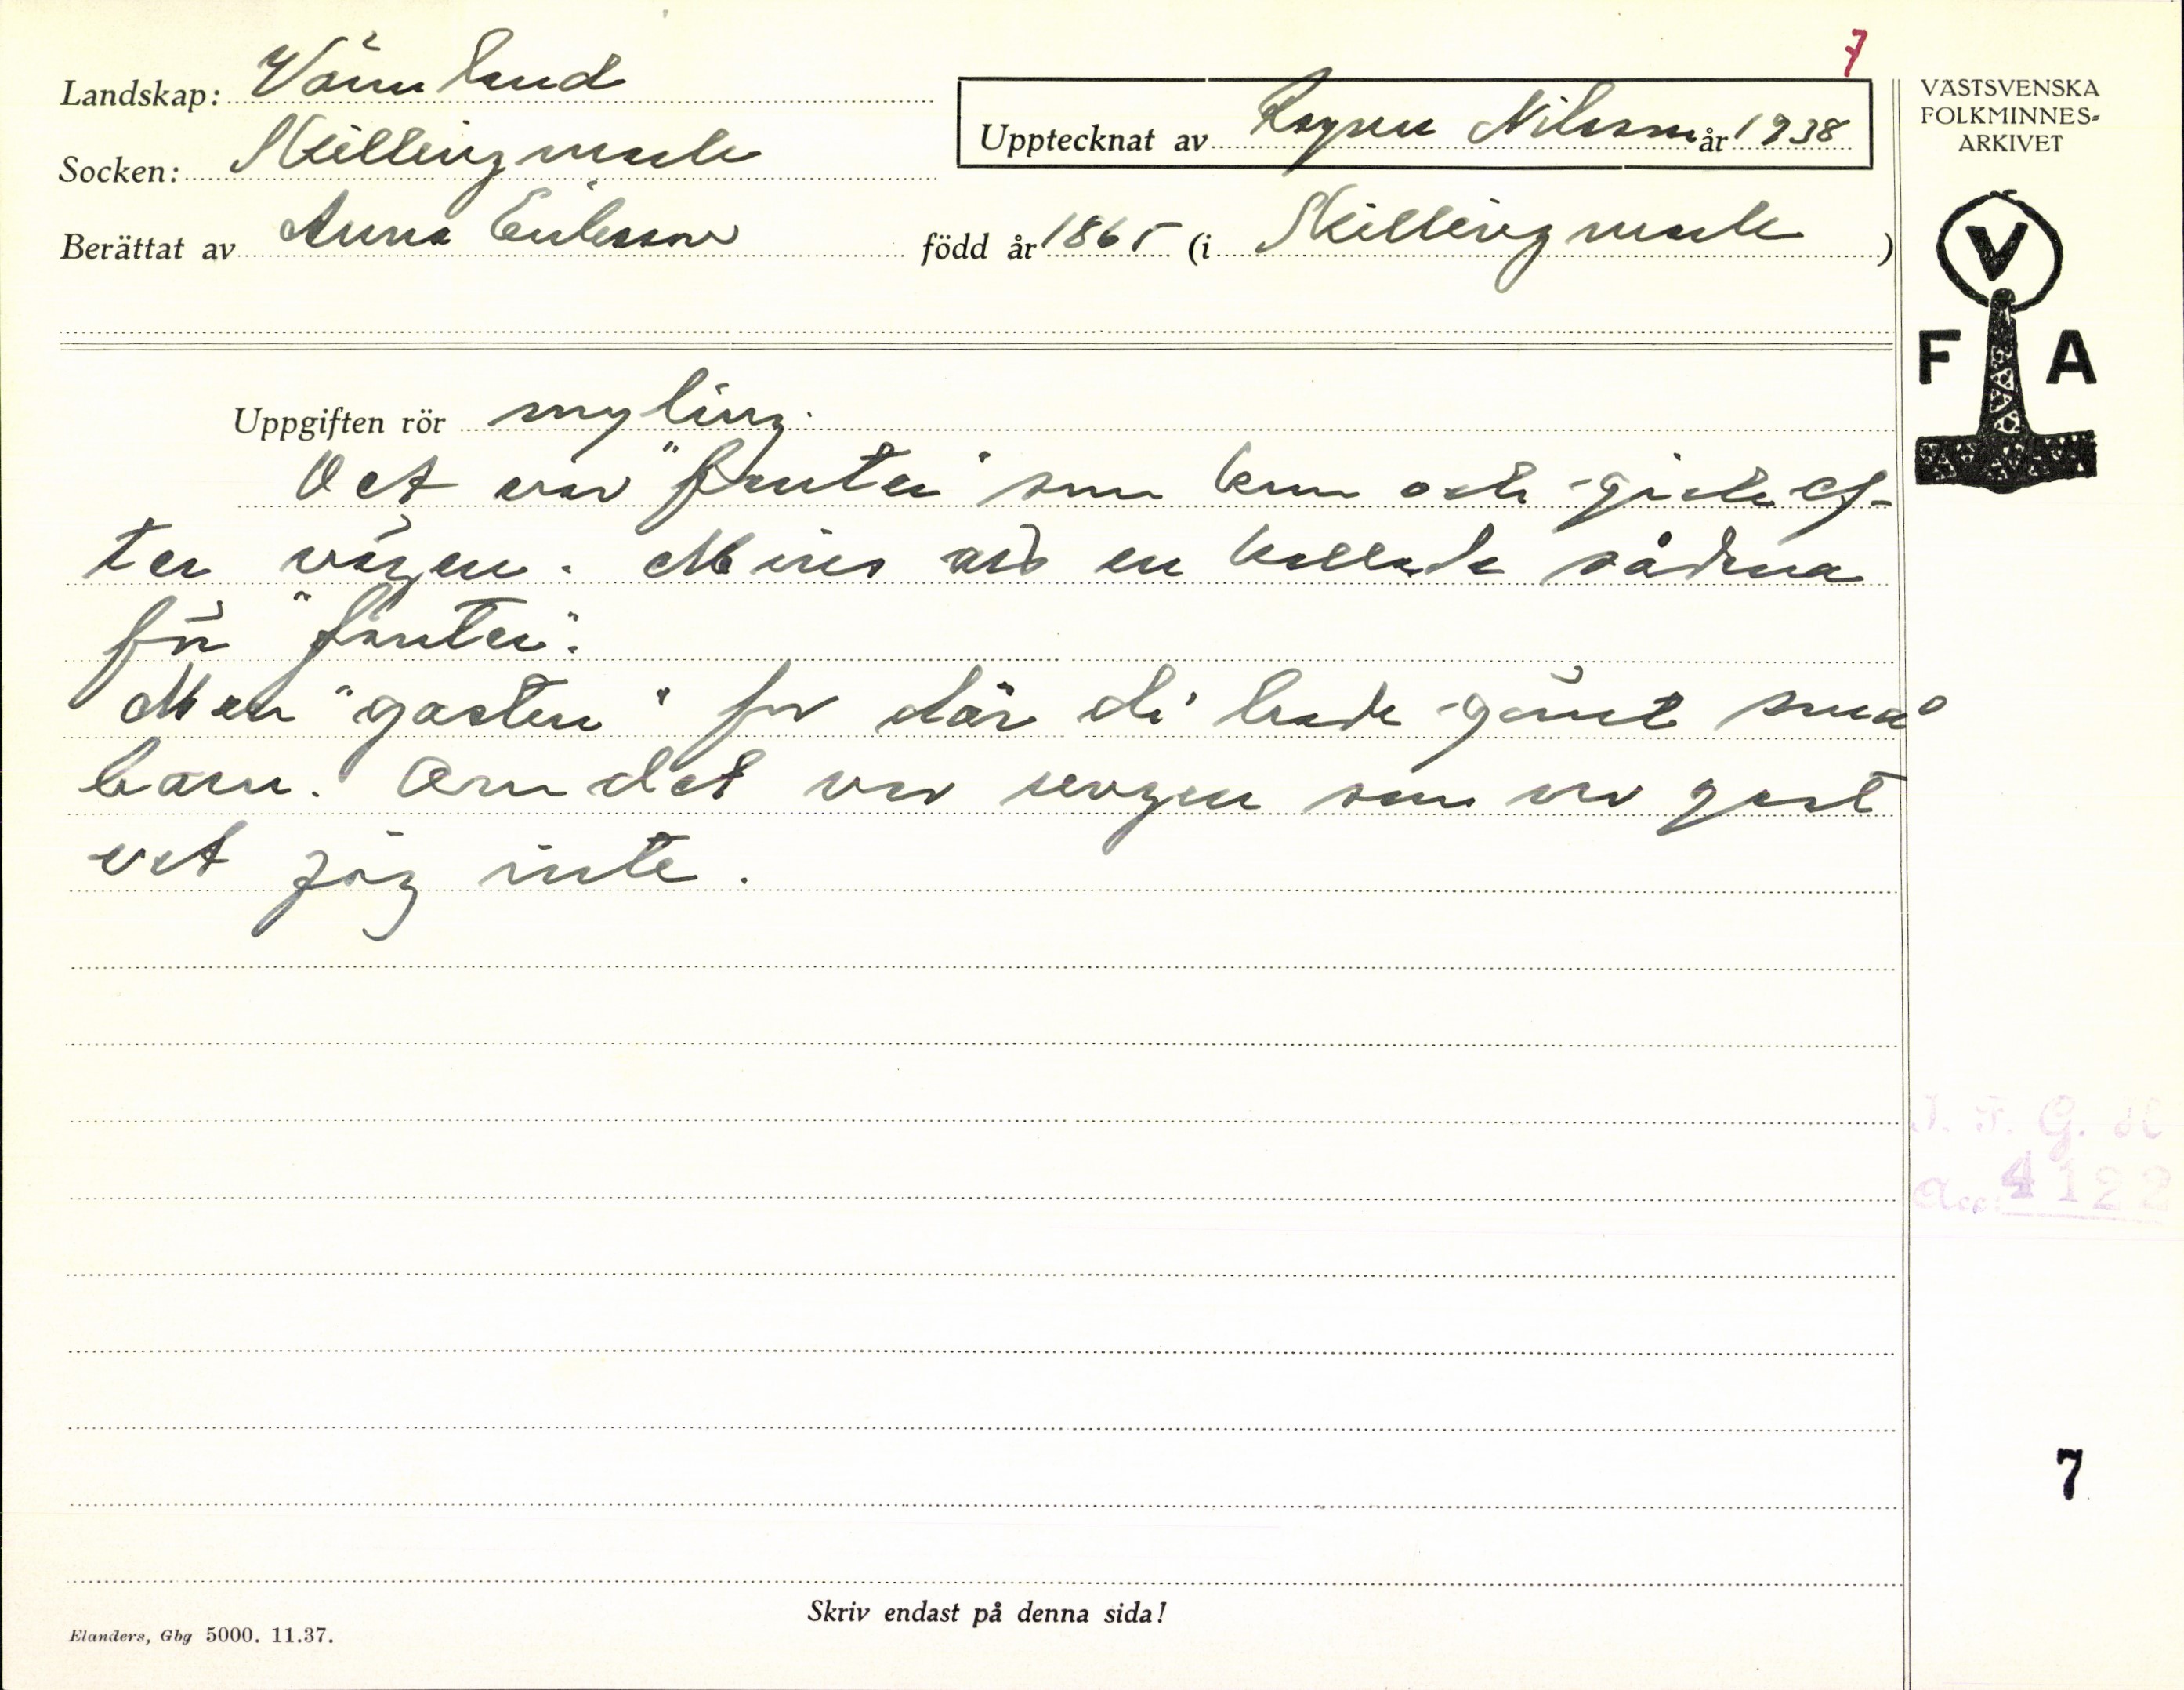 7
Landskap: Värmland
Upptecknat av Ragnar Nilsson år 1938
Socken: Skillingmark
Berättat av Anna Eriksson född år 1865 (i Skillingmark)
VÄSTSVENSKA
FOLKMINNES-
ARKIVET
V
F A
Uppgiften rör myling.
Det var "fanter" som kom och gick ef-
ter vägen. Minns att en kallade sådana
för "fanter".
Men "gasten" for där di hade gömt små
barn. Om det var ungen som var gast
vet jag inte.
I. F. G. H
Acc. 4122
7
Skriv endast på denna sida!
Elanders, Gbg 5000. 11.37.